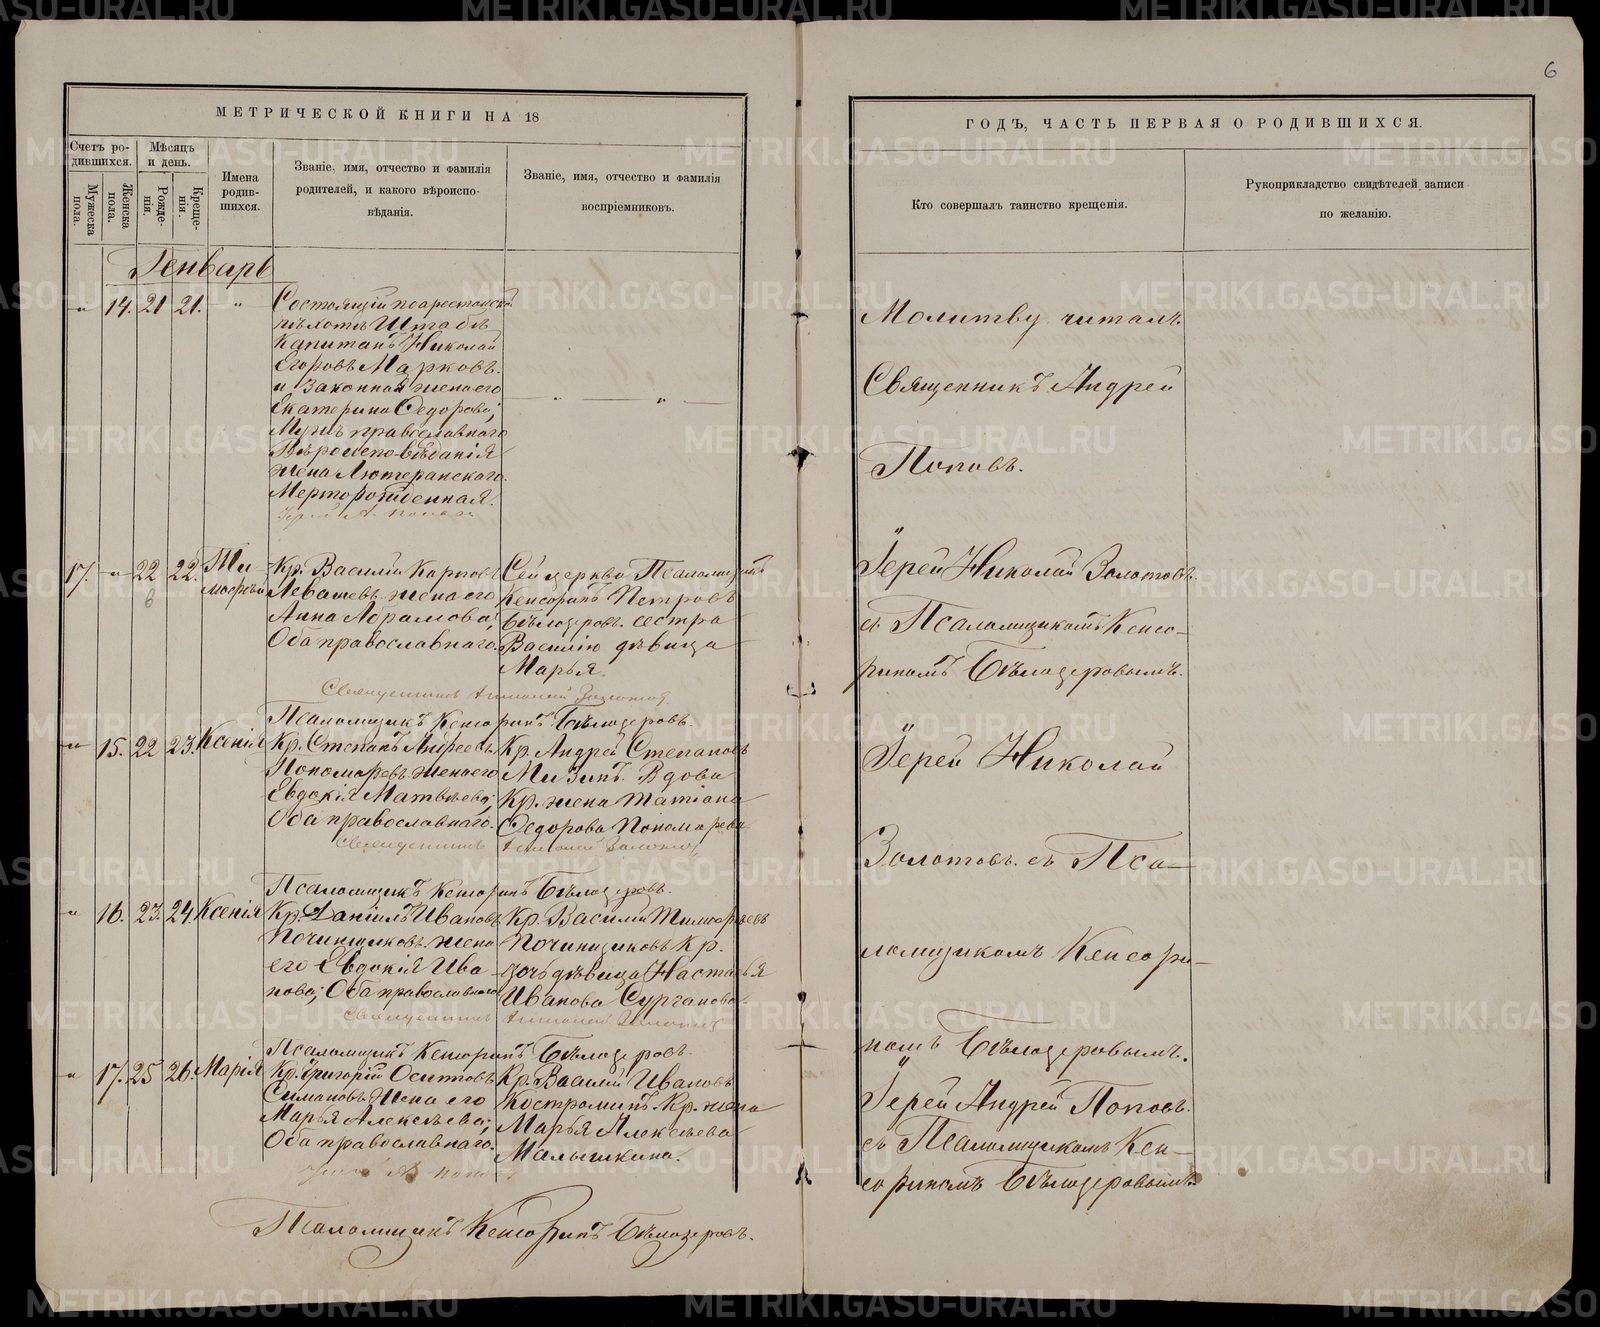 МЕТРИЧЕСКОЙ КНИГИ НА 18
Счетъ ро-
дившихся.
Мѣсяцъ
и день.
Мужеска
пола.
Женска
пола.
Рожде-
нія.
Креще-
нія.
Имена
родив-
шихся.
Званіе, имя, отчество и фамилія
родителей, и какого вѣроиспо-
вѣданія.
Званіе, имя, отчество и фамилія
воспріемниковъ.
Генварь
14. 21 21. "
Состоящій по арестантск.
ротѣ Штабсъ
Капитанъ Николай
Егоровъ Марковъ.
и законная жена его
Екатерина Ѳедорова;
Мужъ православнаго
Вѣроисповѣданія
жена Лютеранскаго.
Мерторожденная.
Іерей А. Поповъ
17. 22 22. Ти-
мофей
6
Кр. Василій Карповъ
Левашевъ. жена его
Анна Абрамова;
Оба православнаго.
Сей церкви Псаломщикъ
Кенсоринъ Петровъ
Бѣлозеровъ. сестра
Василію дѣвица
Марья.
Священникъ Николай Золотовъ
Псаломщикъ Кенсоринъ Бѣлозеровъ.
15. 22 23. Ксенія
Кр. Степанъ Андреевъ
Пономаревъ. жена его
Евдокія Матвѣева;
Оба православнаго.
Кр. Андрей Степановъ
Мизинъ. Вдова
Кр. жена Татіана
Ѳедорова Пономарева
Священникъ Николай Золотовъ
Псаломщикъ Кенсоринъ Бѣлозеровъ.
16. 23. 24. Ксенія
Кр. Даніилъ Ивановъ
Починщиковъ. жена
его Евдокія Ива-
нова; Оба православнаго
Кр. Василій Тимофѣевъ
Починщиковъ Кр.
дочь дѣвица Настасья
Иванова Сурганова.
Священникъ Николай Золотовъ
Псаломщикъ Кенсоринъ Бѣлозеровъ.
17. 25 26. Марія
Кр. Григорій Осиповъ
Симановъ. Жена его
Марья Алексѣева;
Оба православнаго.
Кр. Василій Ивановъ
Костроминъ. Кр. жена
Марья Алексѣева
Малышкина.
Іерей А. Поповъ
Псаломщикъ Кенсоринъ Бѣлозеровъ.
6
ГОДЪ, ЧАСТЬ ПЕРВАЯ О РОДИВШИХСЯ.
Кто совершалъ таинство крещенія.
Рукоприкладство свидѣтелей записи
по желанію.
Молитву читалъ
Священникъ Андрей
Поповъ.
Іерей Николай Золотовъ
съ Псаломщикомъ Кенсо-
риномъ Бѣлозеровымъ.
Іерей Николай
Золотовъ. съ Пса-
ломщикомъ Кенсори-
номъ Бѣлозеровымъ.
Іерей Андрей Поповъ.
съ Псаломщикомъ Кен-
сориномъ Бѣлозеровымъ
METRIKI.GASO-URAL.RU